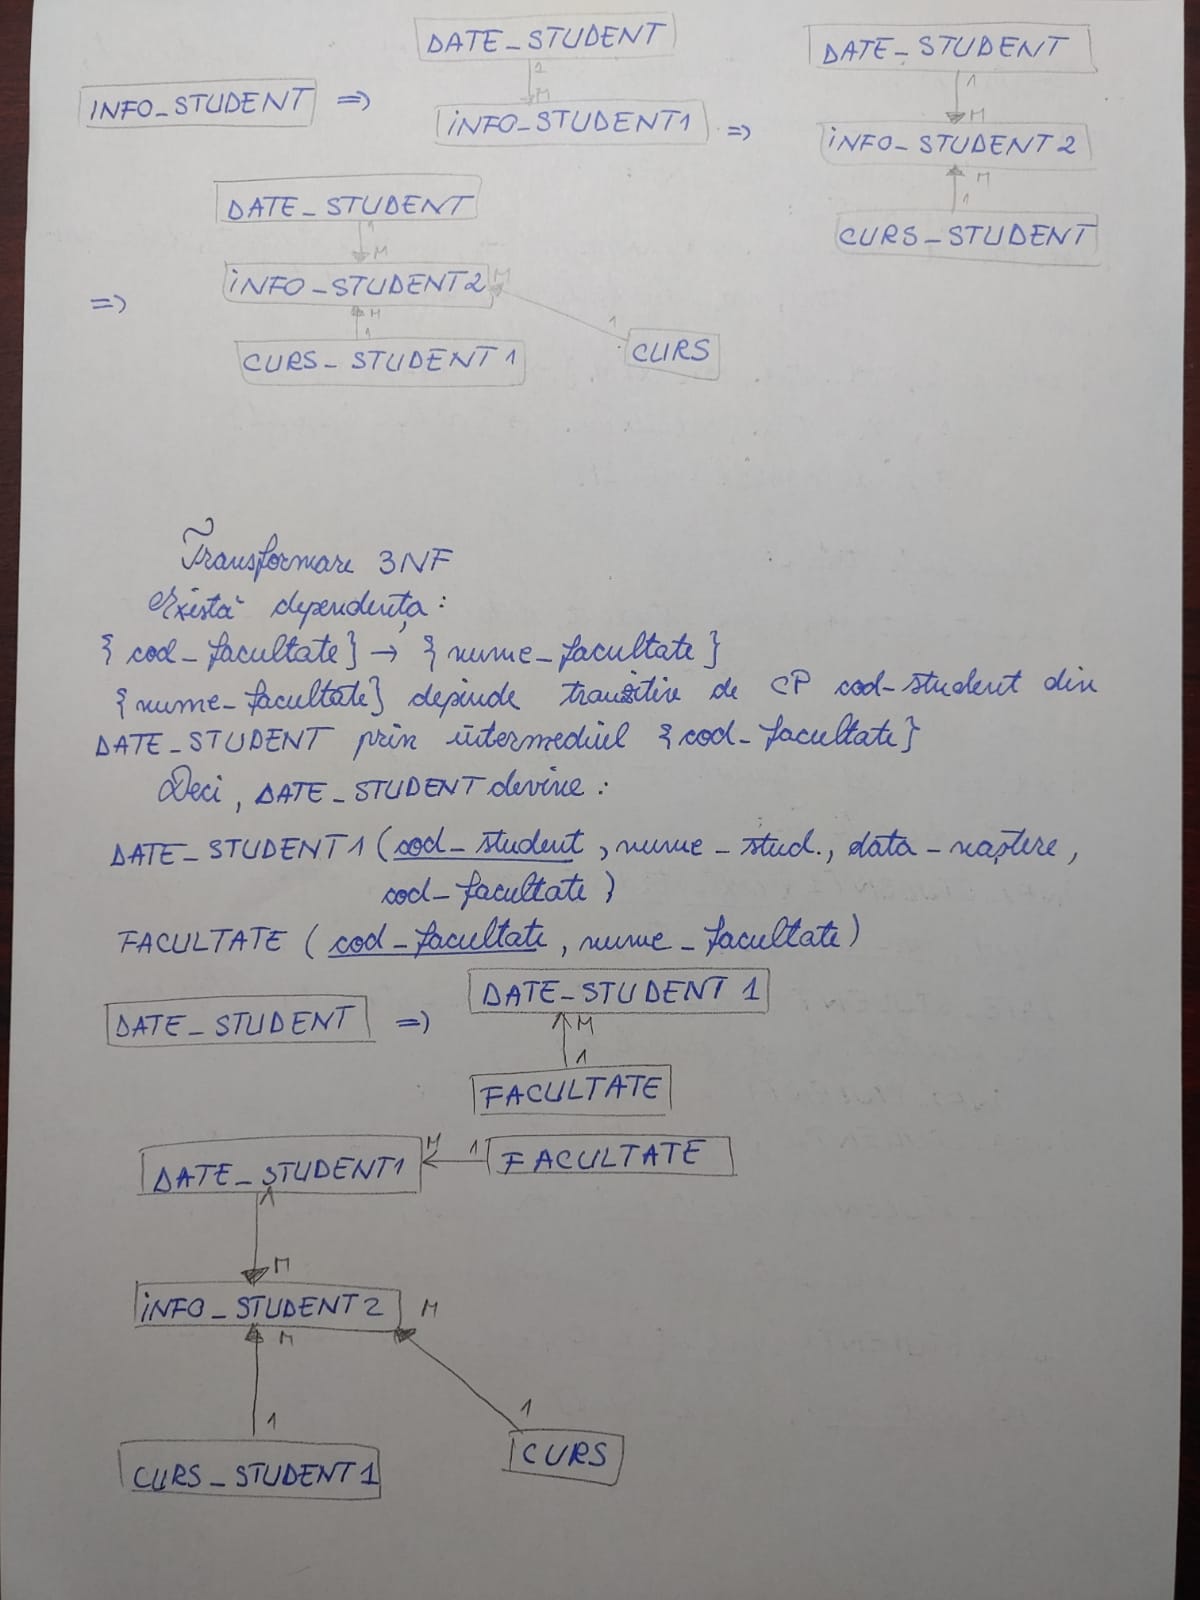 DATE_STUDENT
DATE_STUDENT
1
1
INFO_STUDENT =>
M
M
INFO_STUDENT1 =>
INFO_STUDENT 2
M
1
DATE_STUDENT
CURS_STUDENT
1
M
=> INFO_STUDENT2 M
M
1
1
CURS_STUDENT 1
CURS
Transformare 3NF
Există dependența:
{cod_facultate} → {nume_facultate}
{nume_facultate} depinde tranzitiv de CP cod_student din
DATE_STUDENT prin intermediul {cod_facultate}
Deci, DATE_STUDENT devine:
DATE_STUDENT1 (cod_student, nume_stud., data_naștere,
cod_facultate)
FACULTATE (cod_facultate, nume_facultate)
DATE_STUDENT => DATE_STUDENT 1
M
1
FACULTATE
DATE_STUDENT1 M 1 FACULTATE
1
M
INFO_STUDENT 2 M
M
1
1
CURS_STUDENT1
CURS